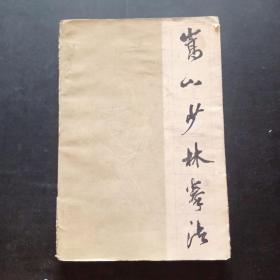 嵩山少林拳法